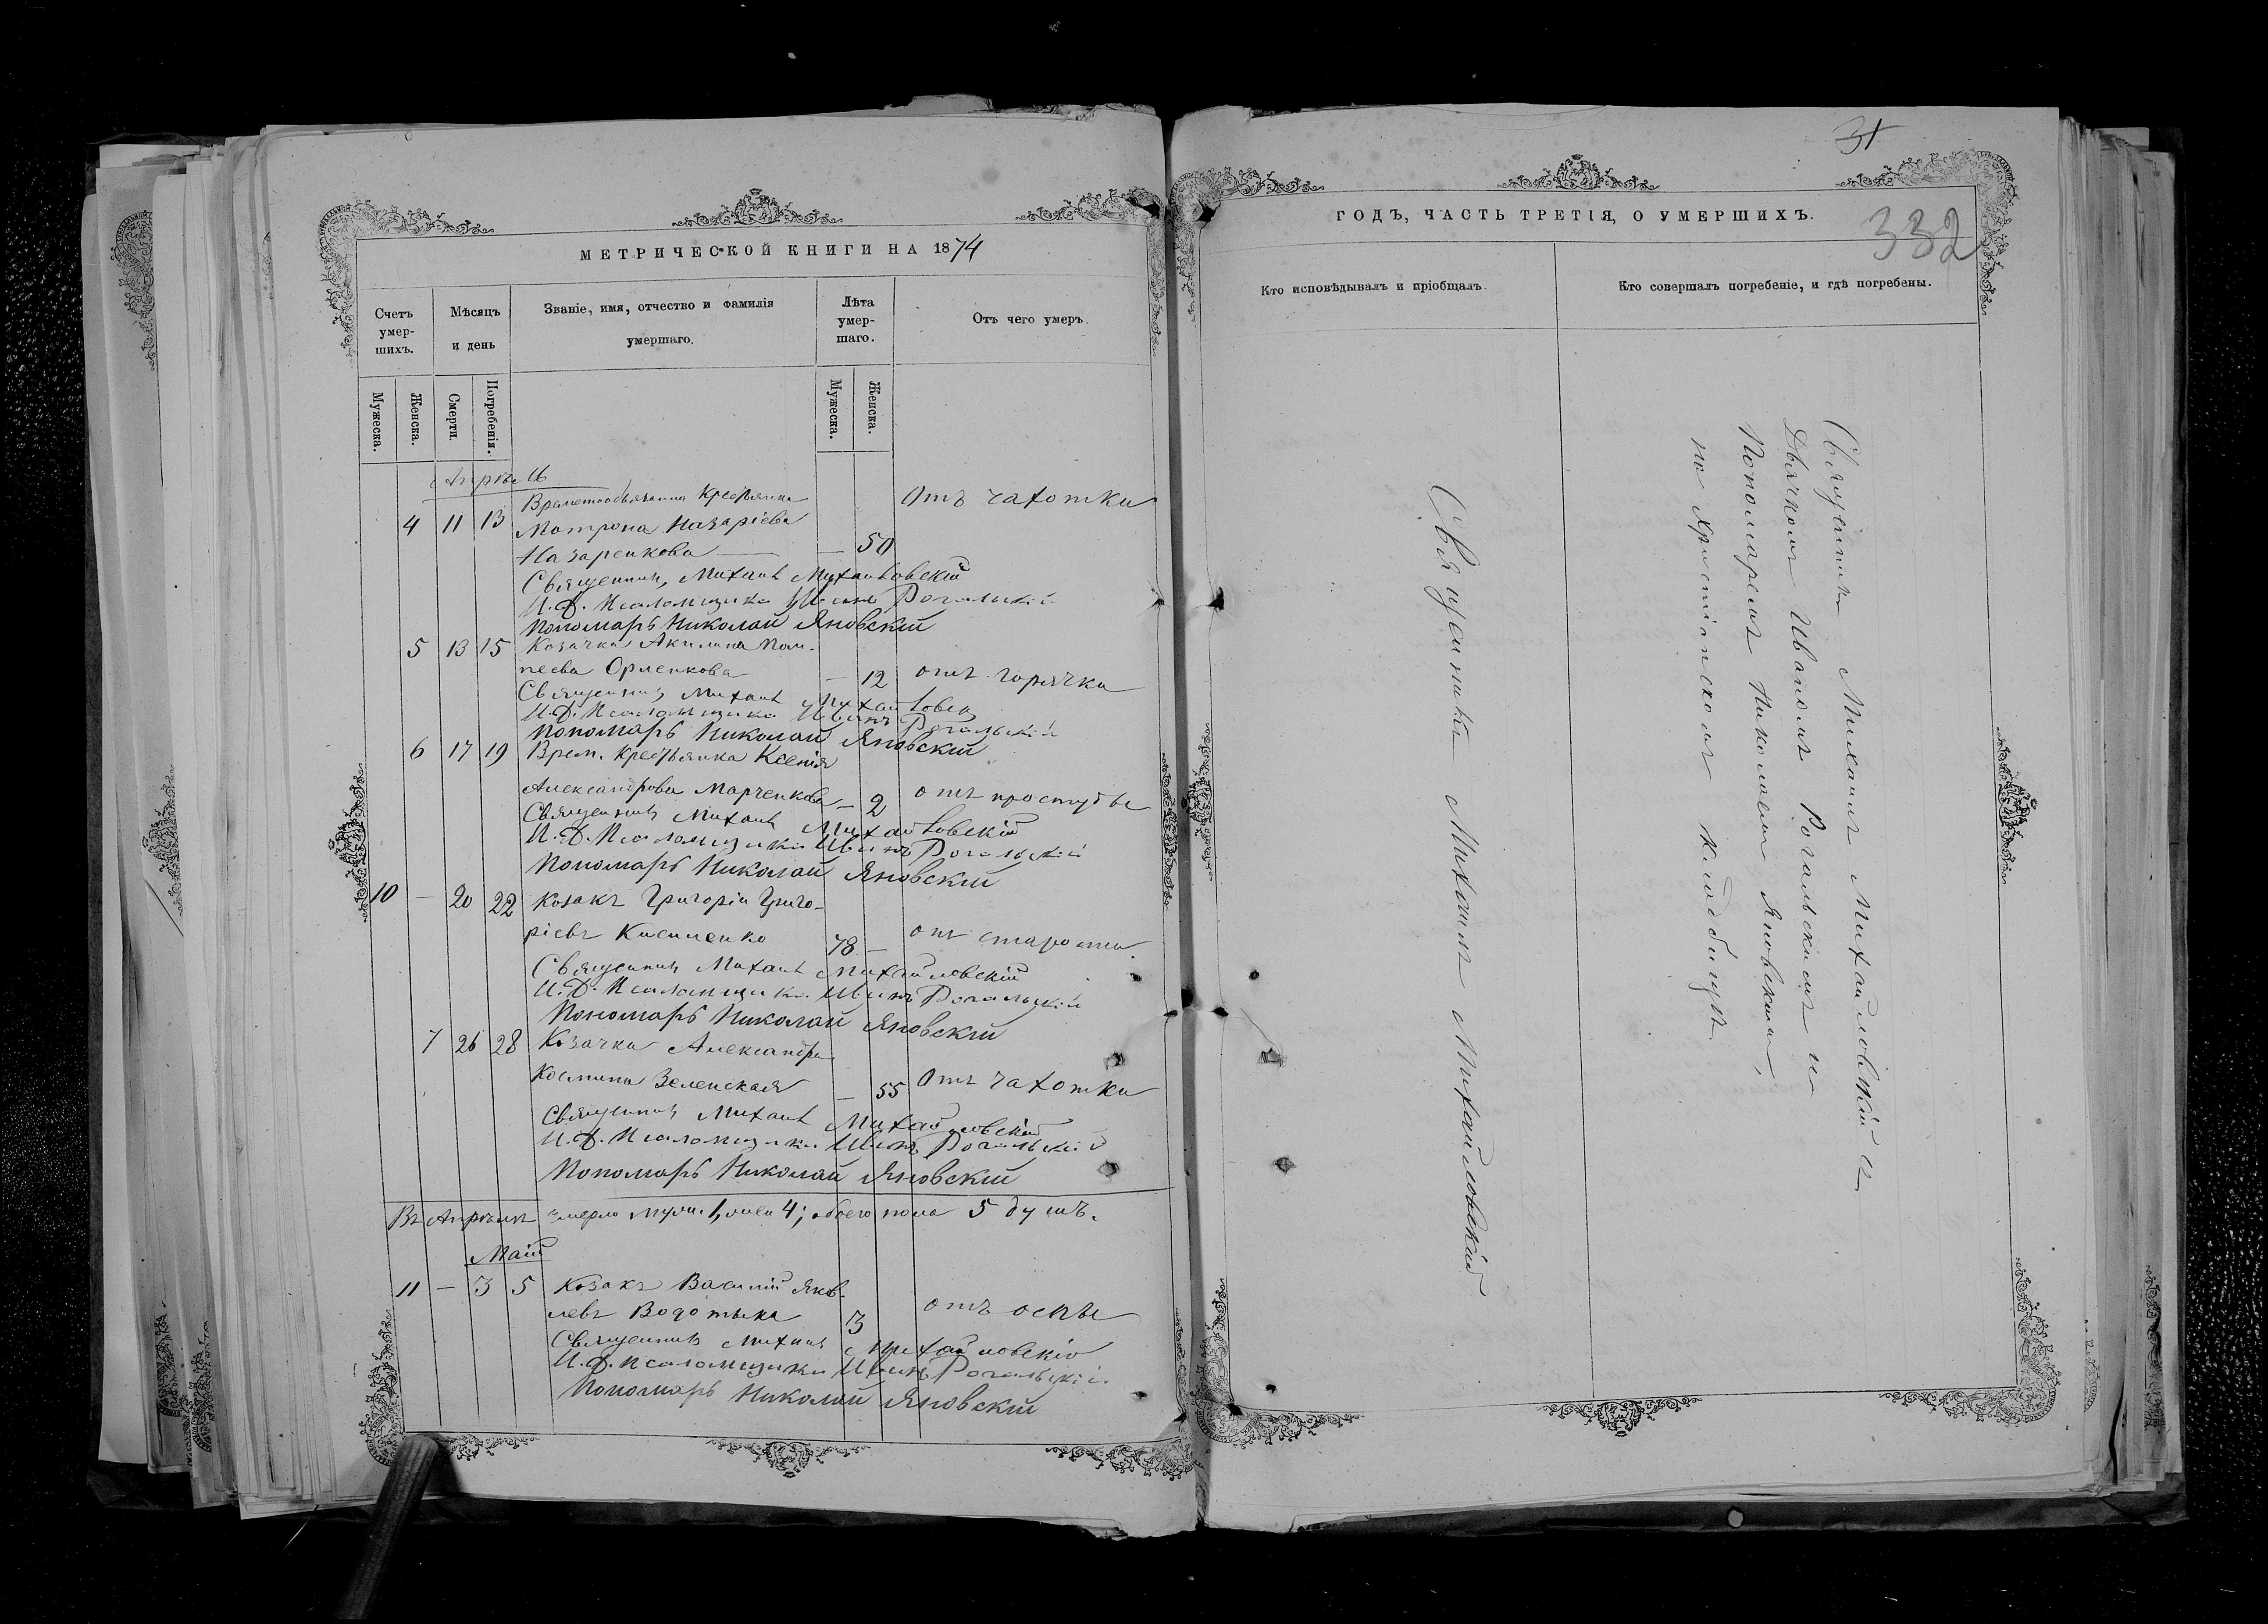 МЕТРИЧЕСКОЙ КНИГИ НА 1874
Счетъ умер-шихъ.
Мѣсяцъ и день
Званіе, имя, отчество и фамилія умершаго.
Лѣта умер-шаго.
Отъ чего умеръ.
Мужеска.
Женска.
Смерти.
Погребенія.
Мужеска.
Женска.
Апрѣль
Временнообязанная крестьянка
Отъ чахотки
4 11 13 Матрона Назаріева
Назаренкова — — 50
Священникъ Михаилъ Михайловскій
И. Д. Псаломщика Иванъ Рогальскій
Пономарь Николай Яновскій
5 13 15 Козачка Акилина Пом-
пеева Орленкова — 12 отъ горячки
Священникъ Михаилъ Михайловск
И. Д. Псаломщика Иванъ Рогальскій
Пономарь Николай Яновскій
6 17 19 Врем. крестьянка Ксенія
Александрова Марченкова — 2 отъ простуды
Священникъ Михаилъ Михайловскій
И. Д. Псаломщика Иванъ Рогальскій
Пономарь Николай Яновскій
10 — 20 22 Козакъ Григорій Григо-
ріевъ Кисиленко 78 — отъ старости.
Священникъ Михаилъ Михайловскій
И. Д. Псаломщика Иванъ Рогальскій
Пономарь Николай Яновскій
7 26 28 Козачка Александра
Космина Зеленская — 55 Отъ чахотки
Священникъ Михаилъ Михайловскій
И. Д. Псаломщика Иванъ Рогальскій
Пономарь Николай Яновскій
Въ Апрѣлѣ умерло муж. 1, жен 4; обоего пола 5 душъ.
Маій
11 — 3 5 Козакъ Василій Яков-
левъ Водотыка 3 отъ оспы
Священникъ Михаилъ Михайловскій
И. Д. Псаломщика Иванъ Рогальскій
Пономарь Николай Яновскій
31
332
ГОДЪ, ЧАСТЬ ТРЕТІЯ, О УМЕРШИХЪ.
Кто исповѣдывалъ и пріобщалъ.
Кто совершалъ погребеніе, и гдѣ погребены.
Священникъ Михаилъ Михайловскій
Священникъ Михаилъ Михайловскій съ
Дьячкомъ Иваномъ Рогальскимъ и
Пономаремъ Николаемъ Яновскимъ,
на христіанскомъ кладбищѣ